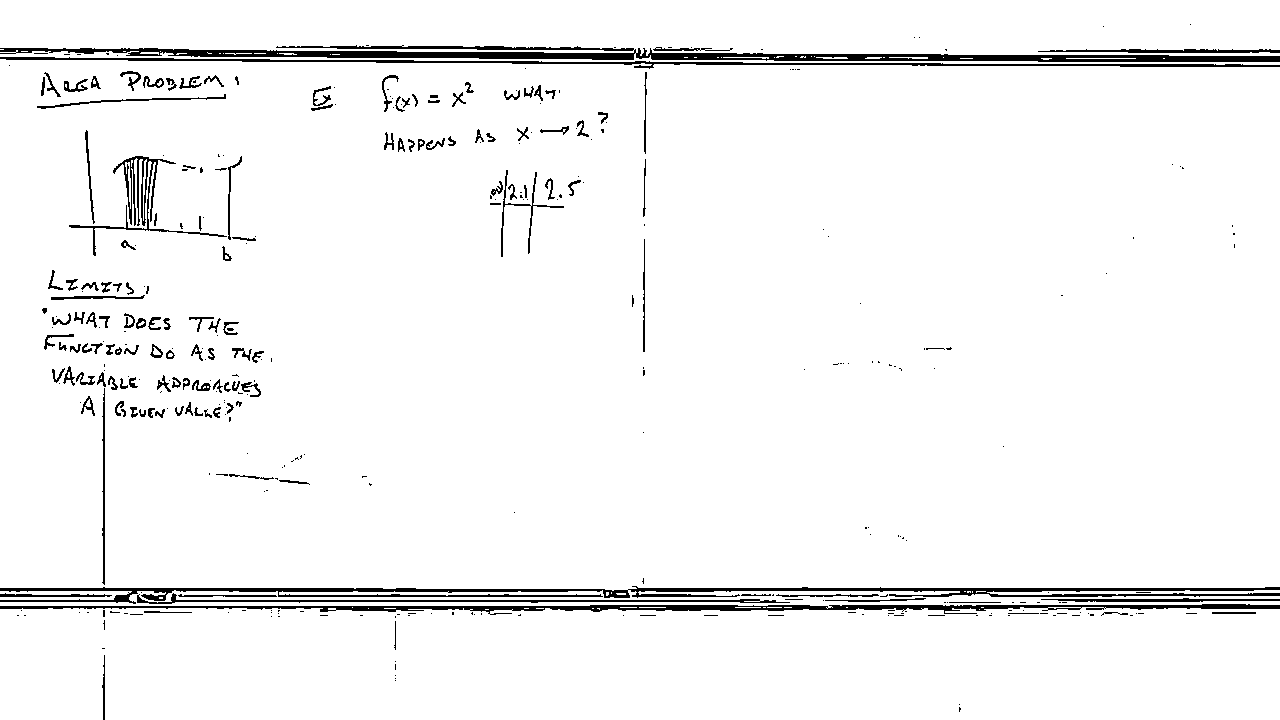 AREA PROBLEM:
a
b
LIMITS:
"WHAT DOES THE
FUNCTION DO AS THE
VARIABLE APPROACHES
A GIVEN VALUE?"
Ex f(x) = x² WHAT
HAPPENS AS x → 2?
2.1 2.5